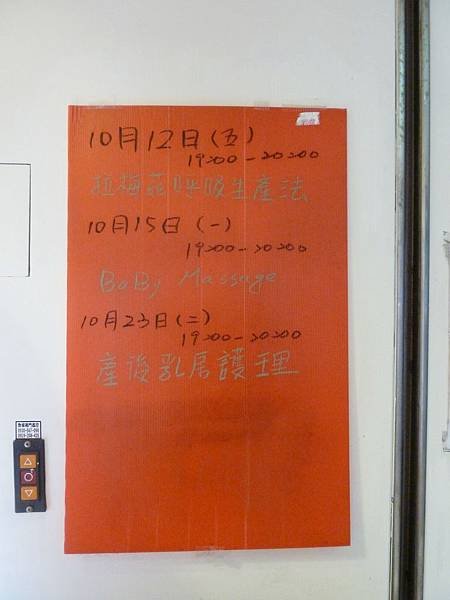 10月12日(五)
19:00-20:00
拉梅茲呼吸生產法
10月15日(一)
19:00-20:00
BaBy Massage
10月23日(二)
19:00-20:00
產後乳房護理